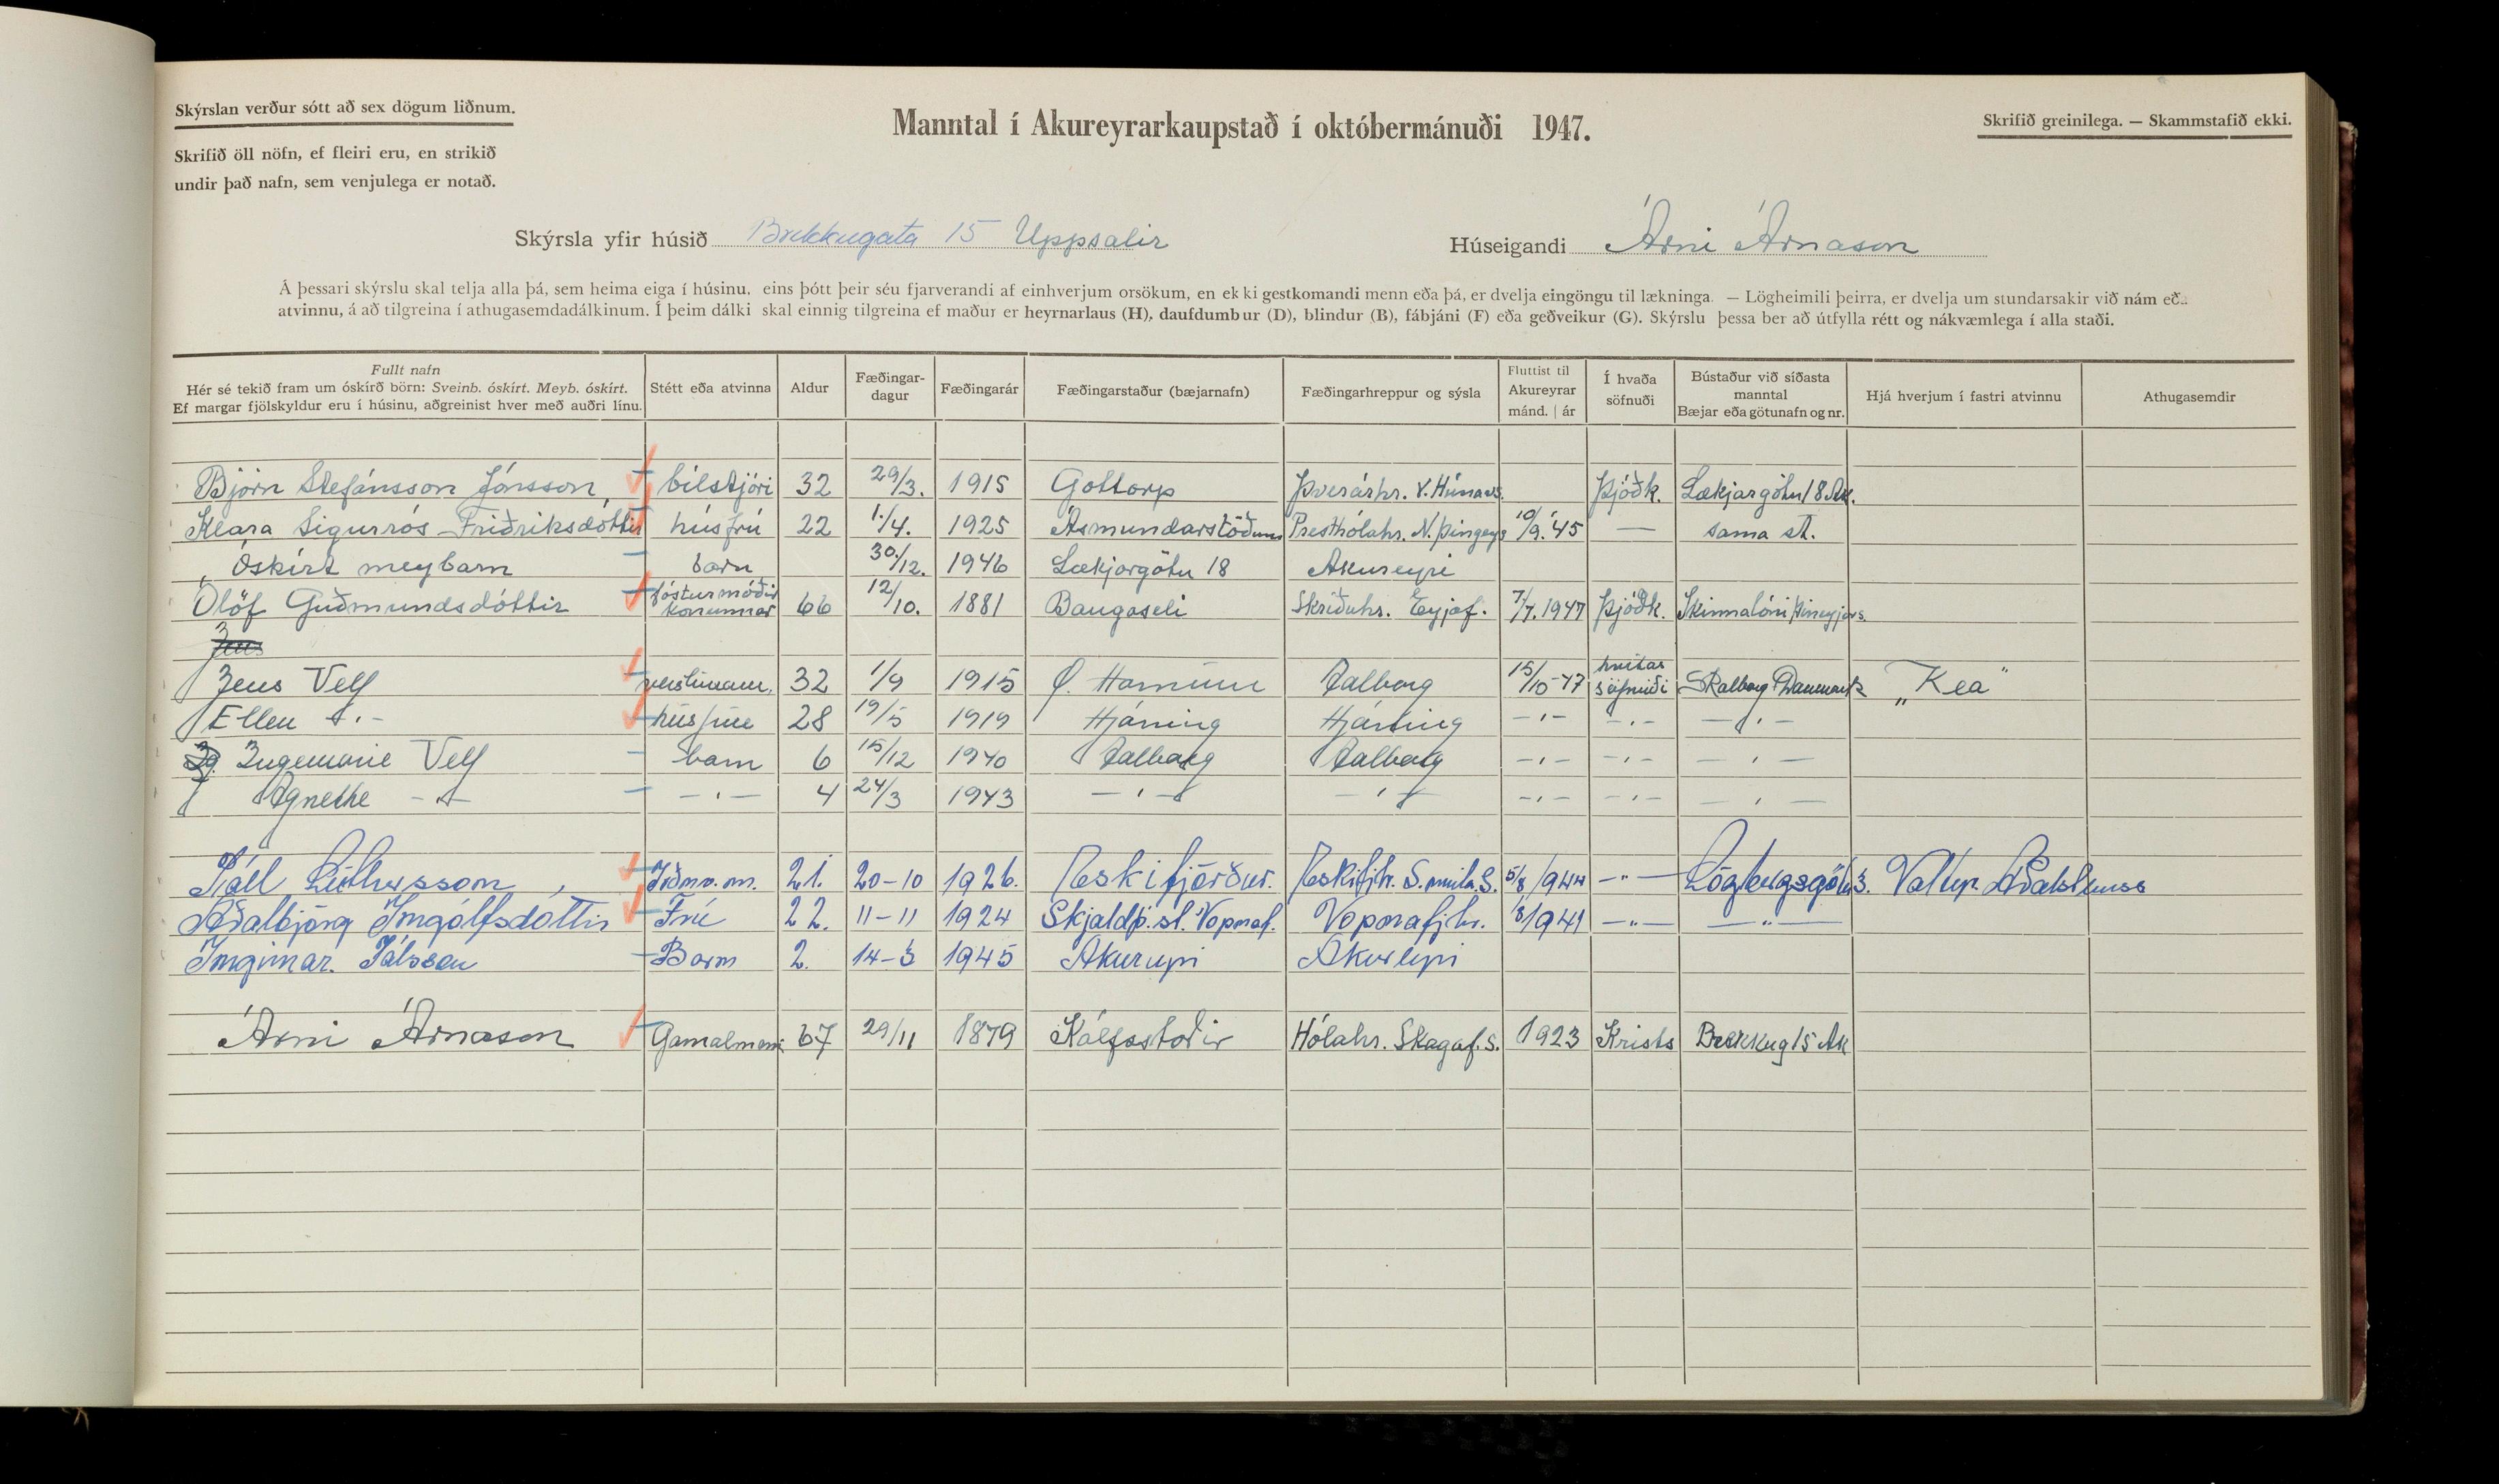 Skýrslan verður sótt að sex dögum liðnum.
Manntal í Akureyrarkaupstað í októbermánuði 1947.
Skrifið greinilega. — Skammstafið ekki.
Skrifið öll nöfn, ef fleiri eru, en strikið
undir það nafn, sem venjulega er notað.
Skýrsla yfir húsið Brekkugata 15 Uppsalir Húseigandi Árni Árnason
Á þessari skýrslu skal telja alla þá, sem heima eiga í húsinu, eins þótt þeir séu fjarverandi af einhverjum orsökum, en ekki gestkomandi menn eða þá, er dvelja eingöngu til lækninga. — Lögheimili þeirra, er dvelja um stundarsakir við nám eða
atvinnu, á að tilgreina í athugasemdadálkinum. Í þeim dálki skal einnig tilgreina ef maður er heyrnarlaus (H), daufdumbur (D), blindur (B), fábjáni (F) eða geðveikur (G). Skýrslu þessa ber að útfylla rétt og nákvæmlega í alla staði.
Fullt nafn
Hér sé tekið fram um óskírð börn: Sveinb. óskírt. Meyb. óskírt.
Ef margar fjölskyldur eru í húsinu, aðgreinist hver með auðri línu.
Stétt eða atvinna
Aldur
Fæðingar-
dagur
Fæðingarár
Fæðingarstaður (bæjarnafn)
Fæðingarhreppur og sýsla
Fluttist til
Akureyrar
mánd. | ár
Í hvaða
söfnuði
Bústaður við síðasta
manntal
Bæjar eða götunafn og nr.
Hjá hverjum í fastri atvinnu
Athugasemdir
Björn Stefánsson Jónsson, bílstjóri 32 29/3. 1915 Gottorp Þverárhr. V. Húnavs. Þjóðk. Lækjargötu 18 Ak.
Klara Sigurrós Friðriksdóttir húsfrú 22 1./4. 1925 Ásmundarstöðum Presthólahr. N. Þingeys 10/9. '45 — sama st.
Óskírt meybarn barn 30./12. 1946 Lækjargötu 18 Akureyri
Ólöf Guðmundsdóttir fósturmóðir konunnar 66 12/10. 1881 Baugaseli Skriðuhr. Eyjaf. 7/7. 1947 Þjóðk. Skinnalóni
Jens
Jens Velf 32 1/9 1915 Ø. Aalborg 15/10 47 hvítas söfnuði Aalborg Danmark „Kea"
Ellen -"- húsfrúe 28 19/5 1919 Hjáring Hjáring -"- -"- -"-
Ingemarie Velf barn 6 15/12 1940 Aalborg Aalborg -"- -"- -"-
Agnethe -"- -"- 4 24/3 1943 -"- -"- -"- -"- -"-
Páll Lúthersson, Iðnv.m. 21. 20-10 1926. Eskifjörður. Eskifjhr. S.múla.S. 5/8 1944 -"- Lögbergsgötu 3.
Aðalbjörg Ingólfsdóttir Frú 22. 11-11 1924 Skjaldþ.st. Vopnaf. Vopnafjhr. 1941 -"- -"-
Ingimar. Pálsson Barn 2. 14-3 1945 Akureyri Akureyri
Árni Árnason Gamalmenni 67 29/11 1879 Kálfsstaðir Hólahr. Skagaf.s. 1923 Krists Brekkug 15 Ak